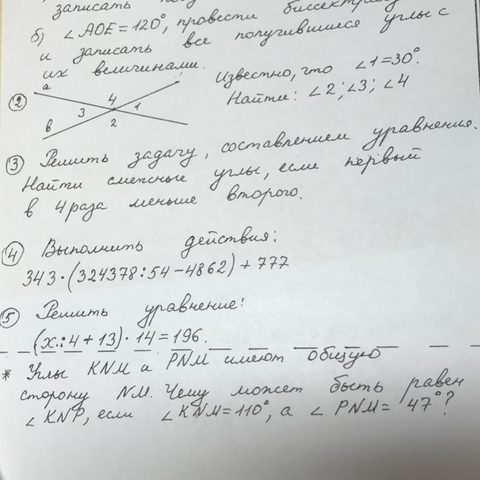 записать
б) ∠AOE=120°, провести биссектрису
и записать все получившиеся углы с
их величинами.
② a b 3 4 1 2 Известно, что ∠1=30°.
Найти: ∠2; ∠3; ∠4
③ Решить задачу, составлением уравнения.
Найти смежные углы, если первый
в 4 раза меньше второго.
④ Выполнить действия:
343·(324378:54-4862)+777
⑤ Решить уравнение:
(x:4+13)·14=196.
* Углы KNM и PNM имеют общую
сторону NM. Чему может быть равен
∠KNP, если ∠KNM=110°, а ∠PNM=47°?